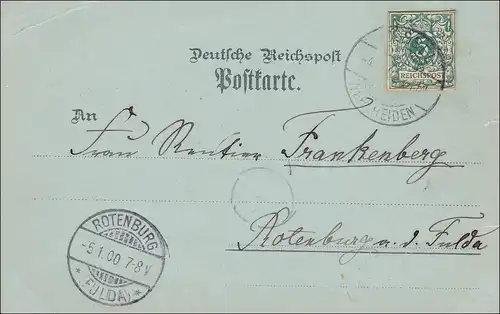 Deutsche Reichspost
Postkarte.
5
REICHSPOST
HEIDEN
An
Frau Rentier Frankenberg
Rotenburg a. d. Fulda
ROTENBURG
-5.1.00 7-8V
* (FULDA) *